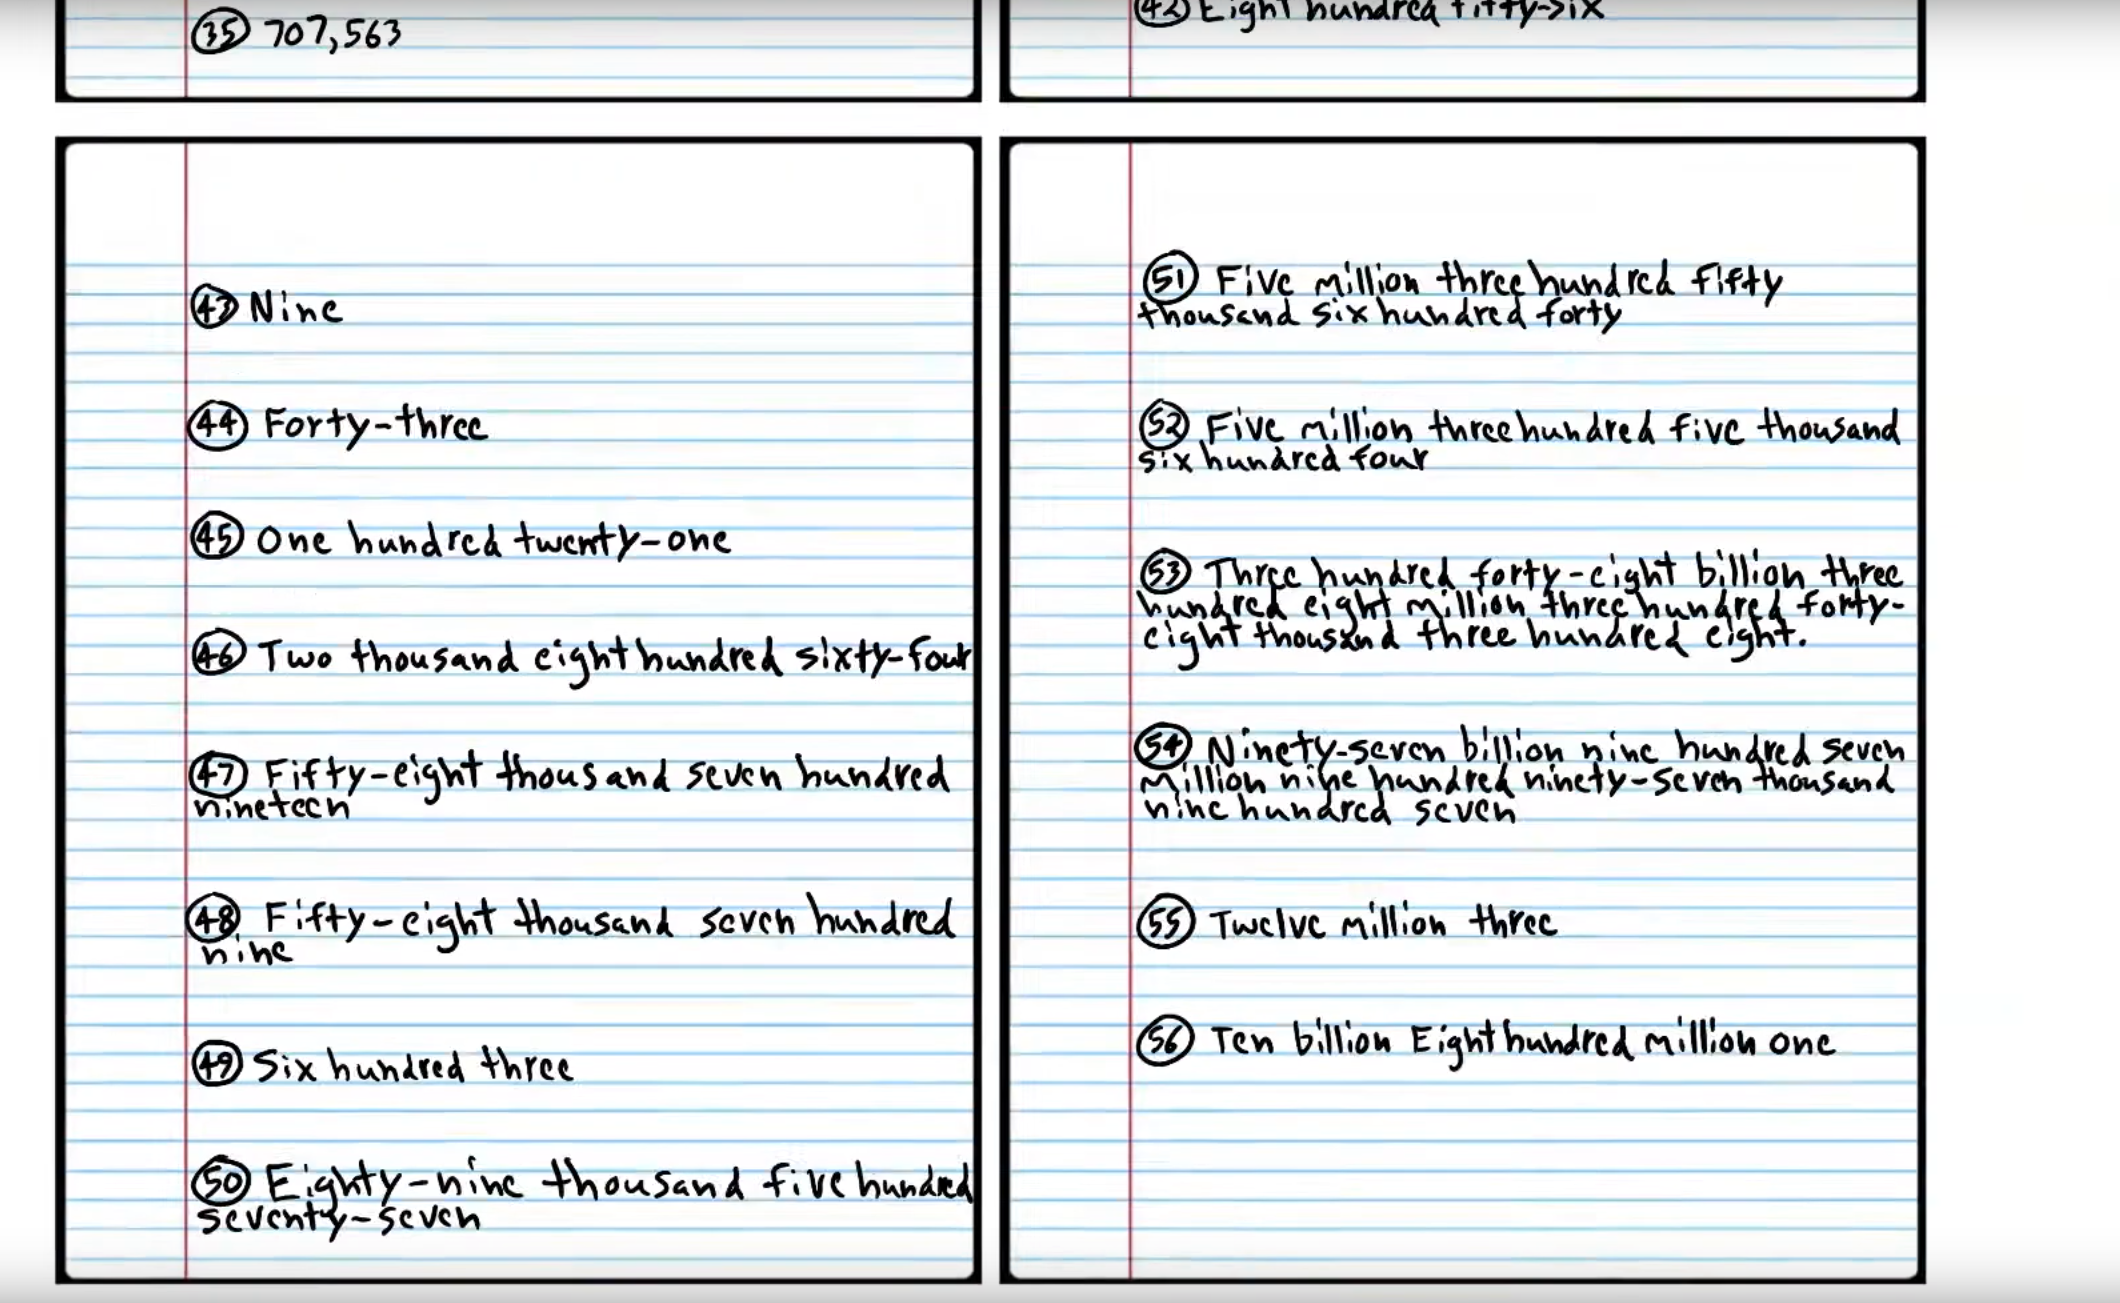 35 707,563
42 Eight hundred fifty-six
43 Nine
44 Forty-three
45 One hundred twenty-one
46 Two thousand eight hundred sixty-four
47 Fifty-eight thousand seven hundred
nineteen
48 Fifty-eight thousand seven hundred
nine
49 Six hundred three
50 Eighty-nine thousand five hundred
seventy-seven
51 Five million three hundred fifty
thousand six hundred forty
52 Five million three hundred five thousand
six hundred four
53 Three hundred forty-eight billion three
hundred eight million three hundred forty-
eight thousand three hundred eight.
54 Ninety-seven billion nine hundred seven
million nine hundred ninety-seven thousand
nine hundred seven
55 Twelve million three
56 Ten billion Eight hundred million one